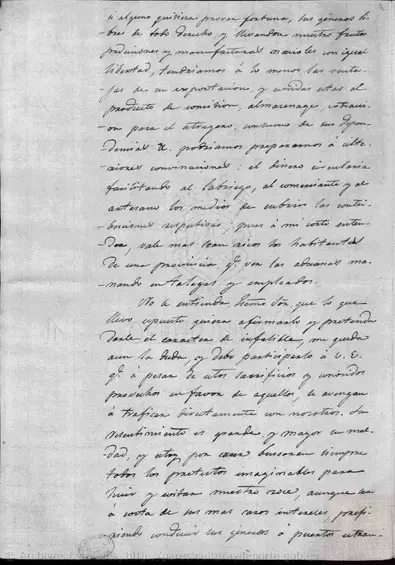 si alguno quisiera provar fortuna, sus géneros li-
bres de todo derecho, y llevandon nuestros frutos
producciones y manufacturas navales con igual
libertad, tendriamos á lo menos las venta-
jas de su exportacion, y unidas estas al
producto de comision, almacenage,
para el estrangero, consumo de sus depen-
dencias &. podriamos prepararnos á ulte-
riores convinaciones: el dinero circularia
facilitando al labriego, al comerciante y al
artesano los medios de cubrir las contri-
buciones respectivas, pues á mi corto enten-
der, vale mas sean ricos los habitantes
de una provincia, q.e ver las aduanas ma-
nando en talegas y empleados.
No se entienda, Exmo Sor, que lo que
llevo espuesto quiera afirmarlo y pretenda
darle el caracter de infalible, me queda
aun la duda, y debo participarlo á V. E.
q.e á pesar de estos sacrificios y
provechos en favor de aquellos, se avengan
á traficar directamente con nosotros. Su
resentimiento es grande, y mayor su mal-
dad, y estoy por creer buscaran siempre
todos los pretestos imaginables para
huir y evitar nuestro roce, aunque sea
á costa de sus mas caros intereses, prefi-
riendo conducir sus géneros á puertos estran-